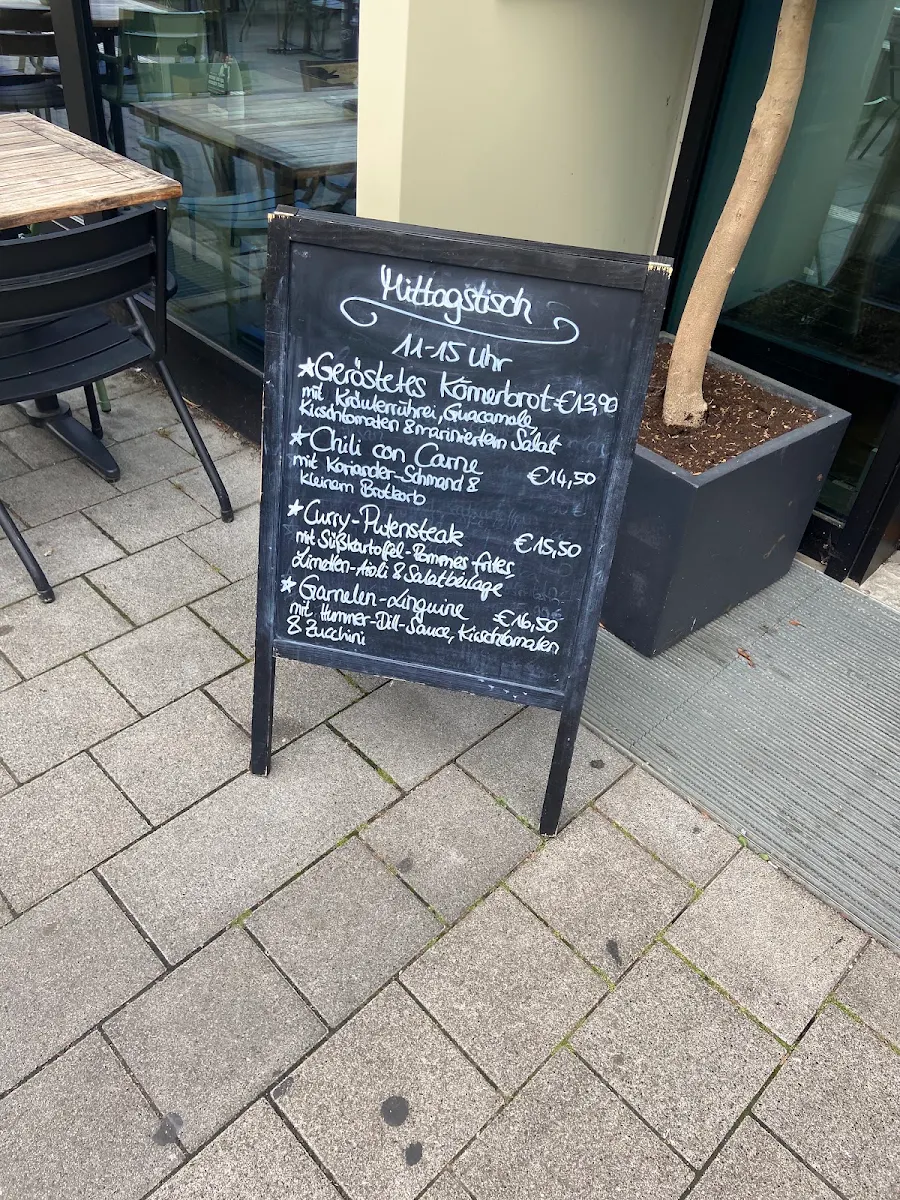 Mittagstisch
11-15 Uhr
★Geröstetes Körnerbrot €13,90
mit Kräuterrührei, Guacamole,
Kirschtomaten & mariniertem Salat
★Chili con Carne
mit Koriander-Schmand & €14,50
kleinem Brotkorb
★Curry-Putensteak €15,50
mit Süßkartoffel-Pommes frites,
Limetten-Aioli & Salatbeilage
★Garnelen-Linguine €16,50
mit Hummer-Dill-Sauce, Kirschtomaten
& Zucchini